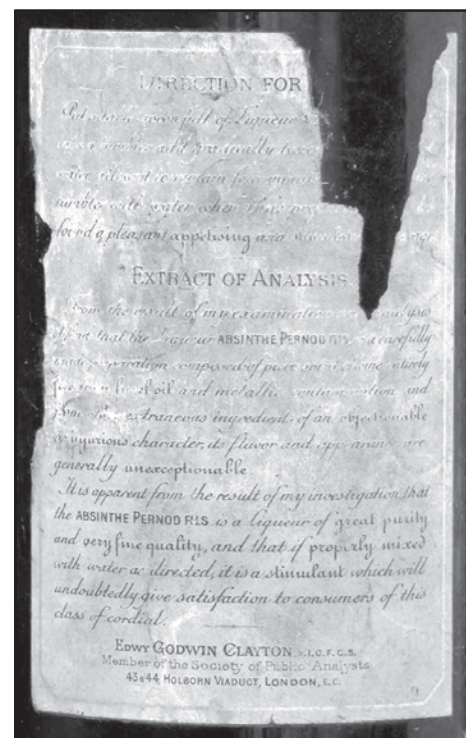 DIRECTION FOR
Put a table spoonfull of Liqueur
gradually
water allowed to remain few
with water when this
found a pleasant appetising and
EXTRACT OF ANALYSIS
From the result of my examination analysis
find that the Liqueur ABSINTHE PERNOD FILS is a carefully
preparation composed of pure wine entirely
free from fusel oil and metallic contamination and
from extraneous ingredients of an objectionable
or injurious character, its flavor and appearance are
generally unexceptionable
It is apparent from the result of my investigation, that
the ABSINTHE PERNOD FILS is a Liqueur of great purity
and very fine quality, and that if properly mixed
with water as directed, it is a stimulant which will
undoubtedly give satisfaction to consumers of this
class of cordial.
EDWY GODWIN CLAYTON, F.I.C. F.C.S.
Member of the Society of Public Analysts
43 & 44, HOLBORN VIADUCT, LONDON, E.C.